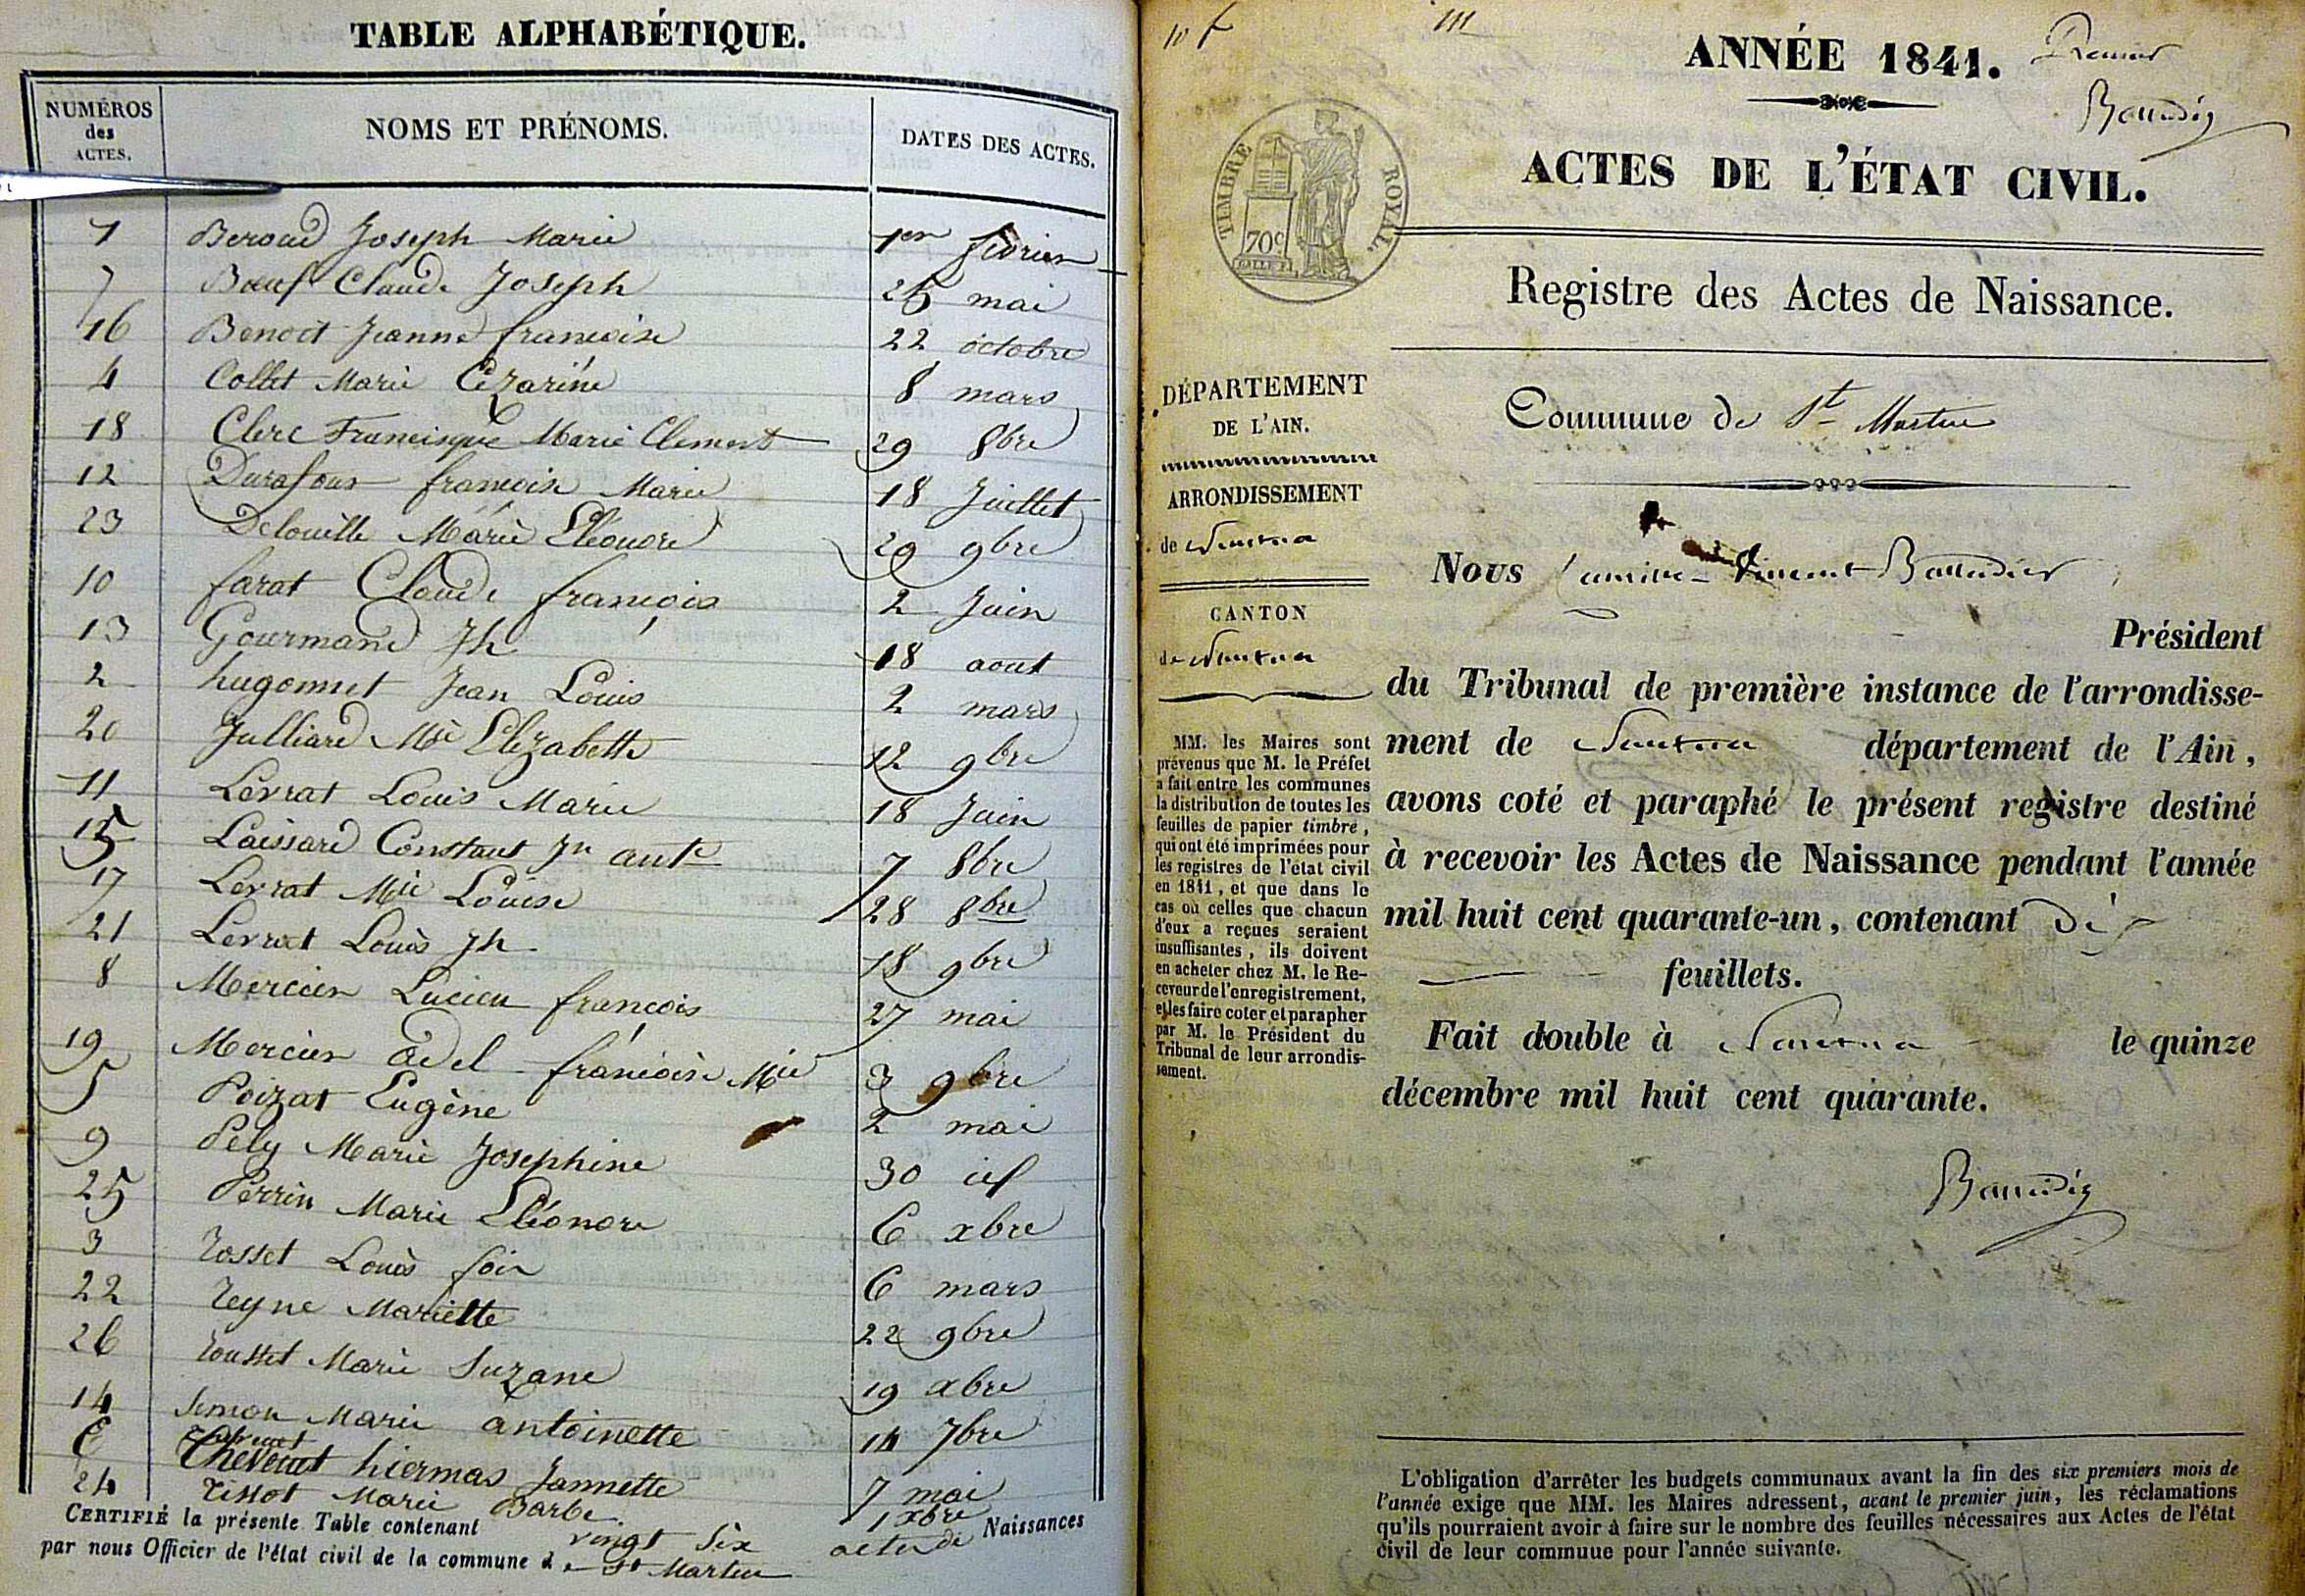 TABLE ALPHABÉTIQUE.
NUMÉROS des ACTES. NOMS ET PRÉNOMS. DATES DES ACTES.
1 Beroud Joseph Marie 1er fevrier
7 Bœuf Claude Joseph 26 mai
16 Benoit Jeanne francoise 22 octobre
4 Collet Marie Cézarine 8 mars
18 Clerc Francisque Marie Clement 29 8bre
12 Durafour francoise Marie 18 Juillet
23 Delouille Marie Eléonore 29 9bre
10 farat Claude françois 2 Juin
13 Gourmand Jh 18 aout
2 hugonnet Jean Louis 2 mars
20 Julliard Mie Elizabette 12 9bre
11 Levrat Louis Marie 18 Juin
15 Laissard Constant Jn 7 8bre
17 Levrat Mie Louise 28 8bre
21 Levrat Louis Jh 18 9bre
8 Mercier Lucien françois 27 mai
19 Mercier adel francoise Mie 3 9bre
5 Poizat Eugène 2 mai
9 Pély Marie Josephine 30 id
25 Perrin Marie Eléonore 6 xbre
3 rosset Louis 6 mars
22 reyne Mariette 22 9bre
26 rousset Marie Suzane 19 xbre
14 Simon Marie antoinette 14 7bre
6 hiermas Jannette 7 mai
24 tissot Marie Barbe 1 xbre
CERTIFIÉ la présente Table contenant vingt six actes de Naissances
par nous Officier de l'état civil de la commune de St Martin
10 f
ANNÉE 1841. Premier
ACTES DE L'ÉTAT CIVIL.
TIMBRE ROYAL.
70c
Registre des Actes de Naissance.
DÉPARTEMENT
DE L'AIN.
ARRONDISSEMENT
de Nantua
CANTON
de Nantua
MM. les Maires sont
prévenus que M. le Préfet
a fait entre les communes
la distribution de toutes les
feuilles de papier timbré,
qui ont été imprimées pour
les registres de l'état civil
en 1841, et que dans le
cas où celles que chacun
d'eux a reçues seraient
insuffisantes, ils doivent
en acheter chez M. le Re-
ceveur de l'enregistrement,
et les faire coter et parapher
par M. le Président du
Tribunal de leur arrondis-
sement.
Commune de St Martin
Nous Camille Vincent
Président
du Tribunal de première instance de l'arrondisse-
ment de Nantua département de l'Ain,
avons coté et paraphé le présent registre destiné
à recevoir les Actes de Naissance pendant l'année
mil huit cent quarante-un, contenant dix
feuillets.
Fait double à Nantua le quinze
décembre mil huit cent quarante.
L'obligation d'arrêter les budgets communaux avant la fin des six premiers mois de
l'année exige que MM. les Maires adressent, avant le premier juin, les réclamations
qu'ils pourraient avoir à faire sur le nombre des feuilles nécessaires aux Actes de l'état
civil de leur commune pour l'année suivante.